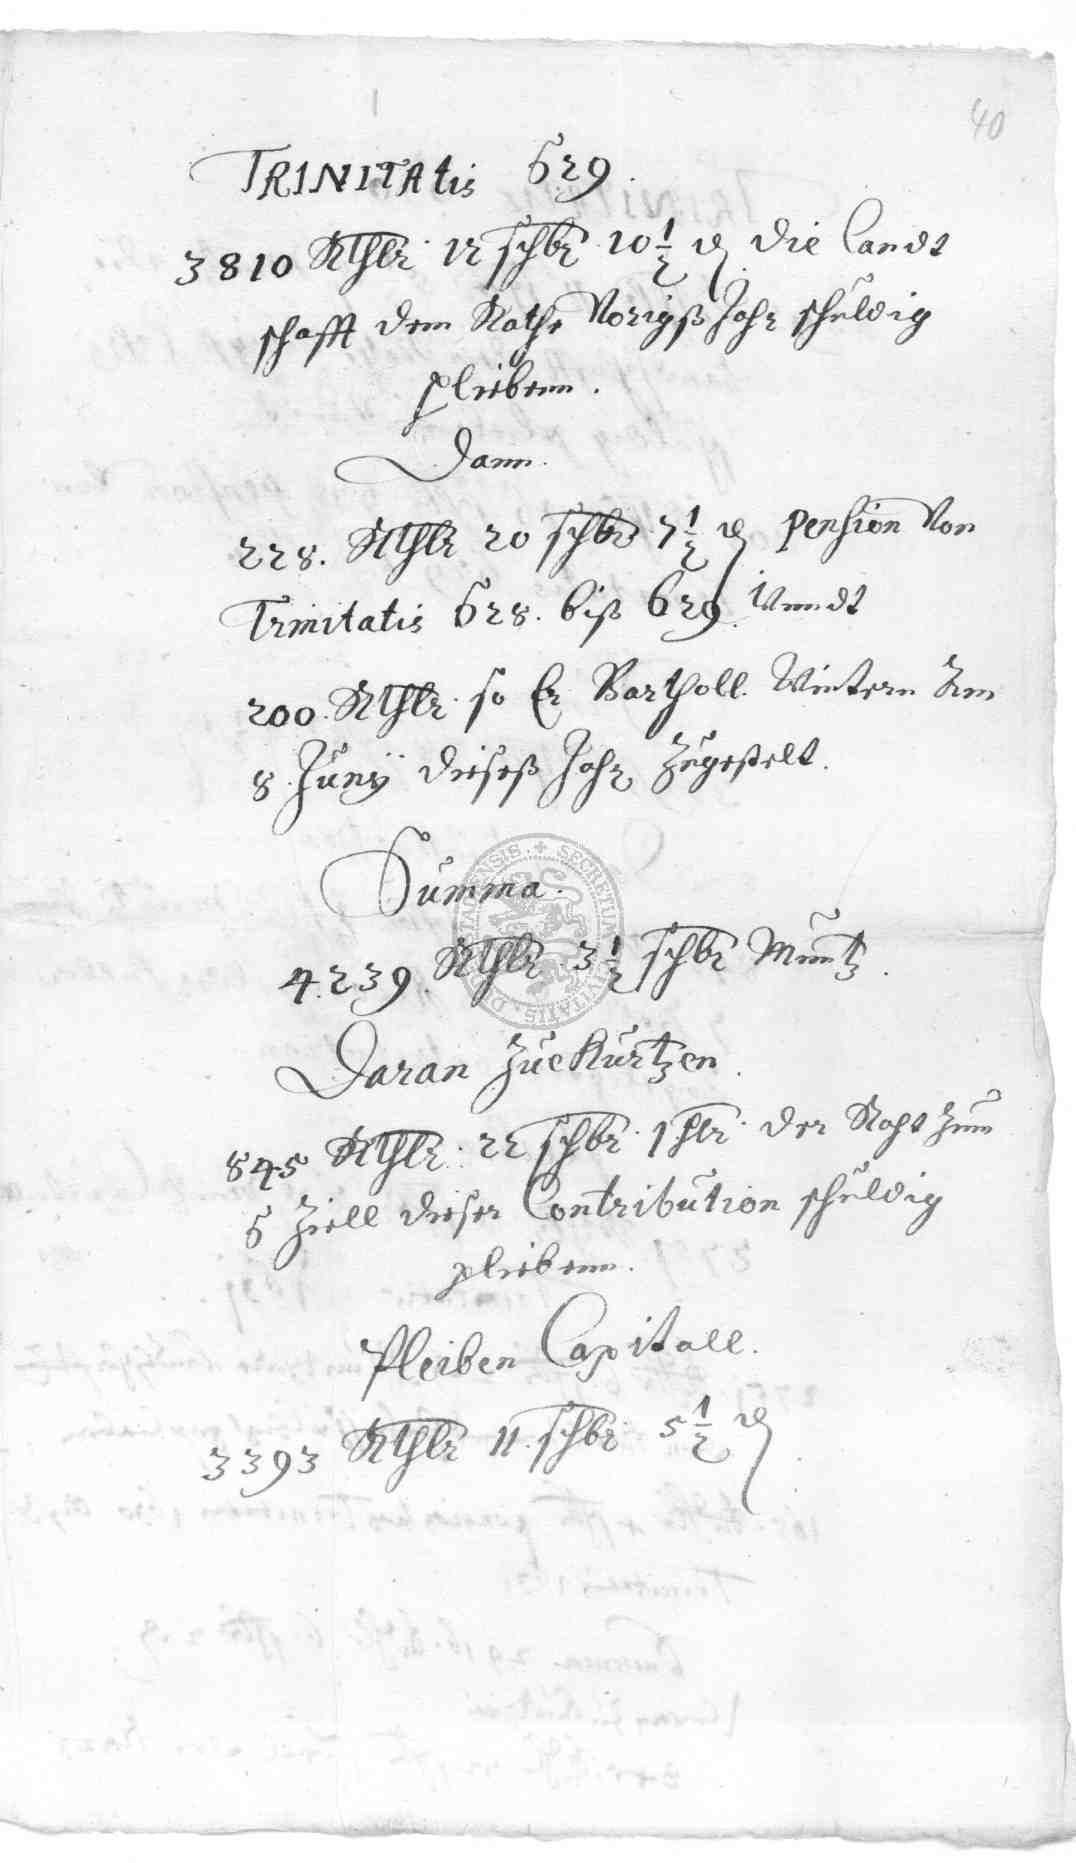 40
TRINITAtis 629.
3810 Rthlr. 12 schlr. 10 1/2 d die Landt
schafft dem Rathe Vorigß Jahr schuldig
plieben.
Dann.
228. Rthlr 20 schlr 7 1/2 d pension Von
Trinitatis 628. biß 629. Vnndt
200. Rthlr. so Er Bartholl. Wintern Am
8. Junÿ dieseß Jahr Zugestelt.
Summa.
4239. Rthlr. 3 1/2 schlr Muntz.
Daran Zue Kurtzen.
845 Rthlr. 22 schlr. 1 hlr. der Raht Zum
5 Ziell dieser Contribution schuldig
pliebenn.
Pleiben Capitall.
3393 Rthlr 11. schlr 5 1/2 d
SECRETUM CIVITATIS